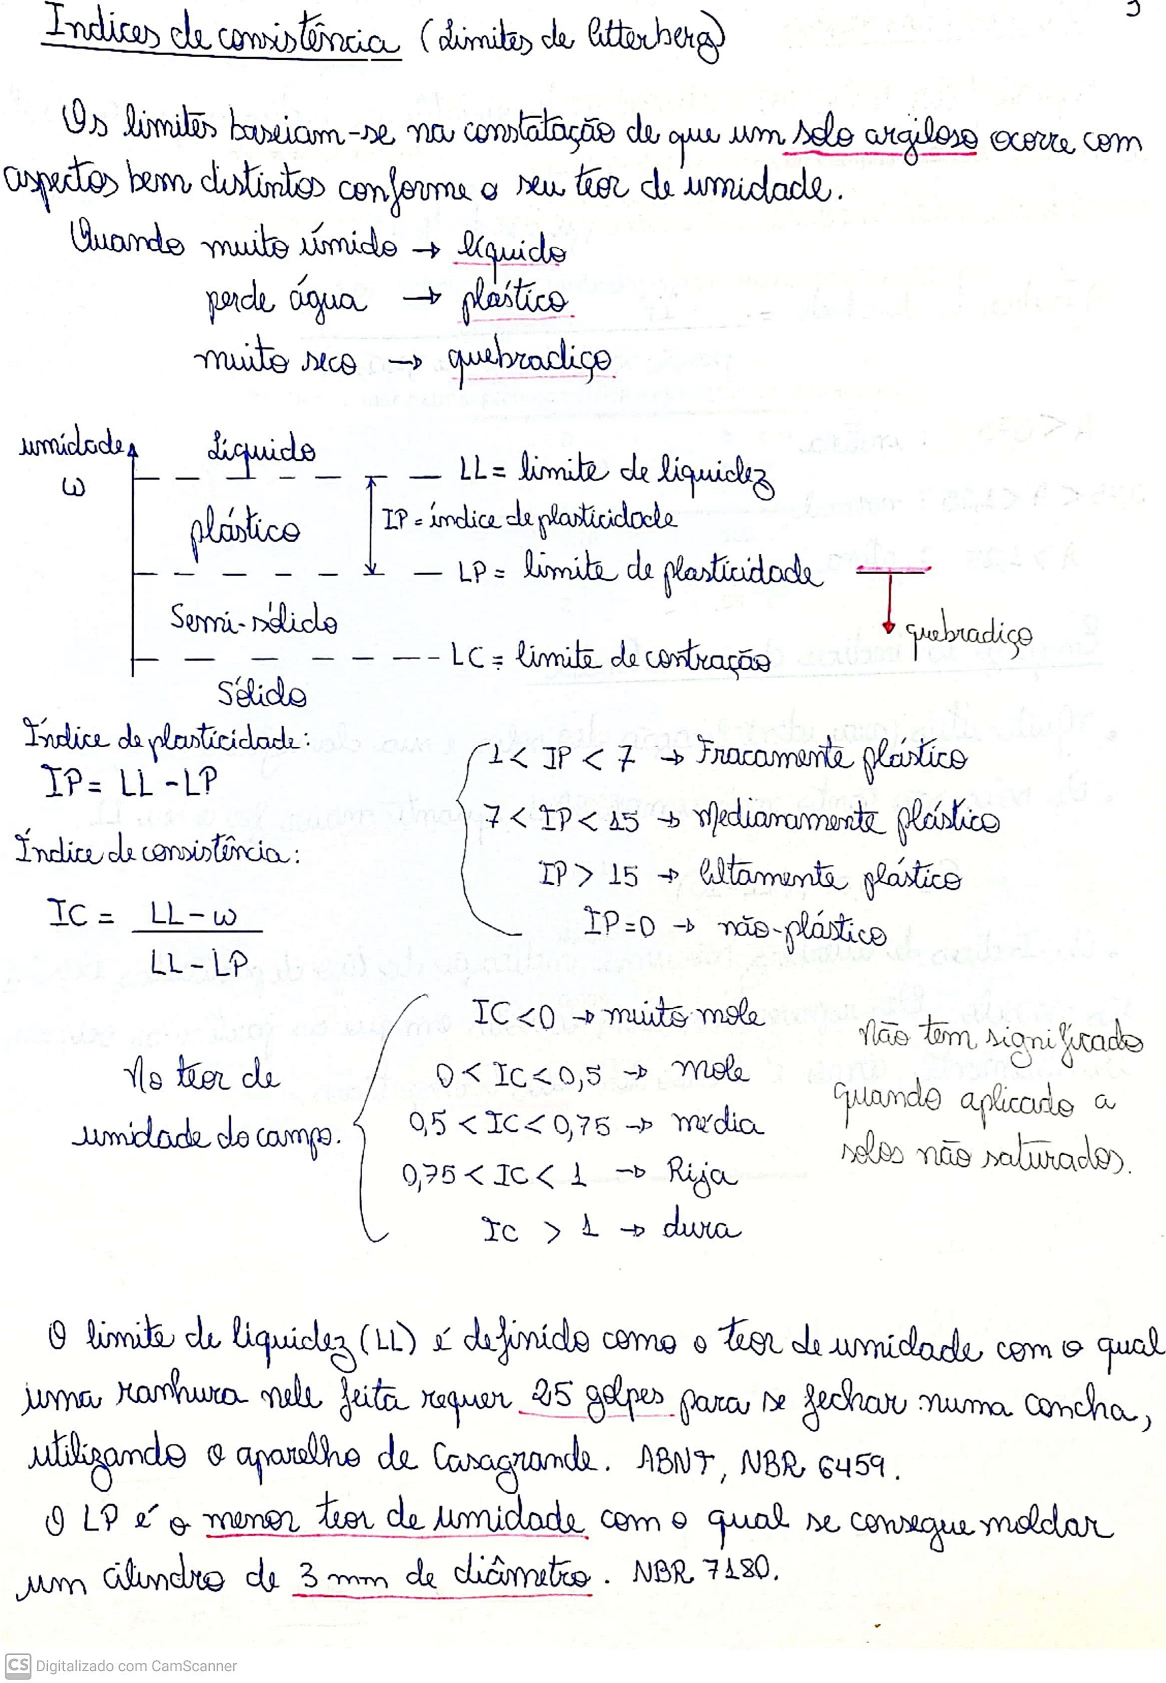 Índices de consistência (Limites de Atterberg)
Os limites baseiam-se na constatação de que um solo argiloso ocorre com
aspectos bem distintos conforme o seu teor de umidade.
Quando muito úmido → líquido
perde água → plástico
muito seco → quebradiço
umidade
ω
Líquido
LL = limite de liquidez
plástico
IP = índice de plasticidade
LP = limite de plasticidade
Semi-sólido
quebradiço
LC = limite de contração
Sólido
Índice de plasticidade:
IP = LL - LP
1 < IP < 7 → Fracamente plástico
7 < IP < 15 → Medianamente plástico
IP > 15 → Altamente plástico
IP = 0 → não-plástico
Índice de consistência:
IC = LL - ω
LL - LP
No teor de
umidade do campo.
IC < 0 → muito mole
0 < IC < 0,5 → mole
0,5 < IC < 0,75 → média
0,75 < IC < 1 → Rija
IC > 1 → dura
Não tem significado
quando aplicado a
solos não saturados.
O limite de liquidez (LL) é definido como o teor de umidade com o qual
uma ranhura nele feita requer 25 golpes para se fechar numa concha,
utilizando o aparelho de Casagrande. ABNT, NBR 6459.
O LP é o menor teor de umidade com o qual se consegue moldar
um cilindro de 3 mm de diâmetro. NBR 7180.
CS Digitalizado com CamScanner